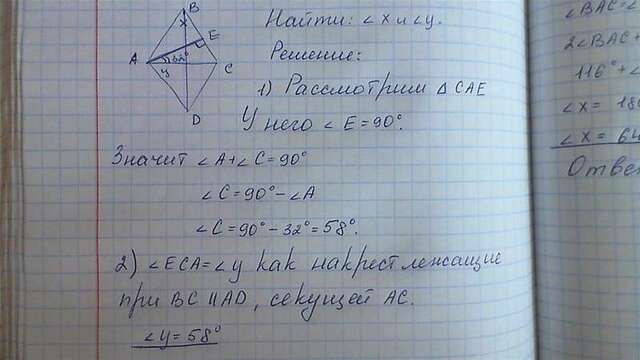 B
x
E
A
32°
y
C
D
Найти: ∠x и ∠y.
Решение:
1) Рассмотрим △ CAE
У него ∠E = 90°.
Значит ∠A+∠C=90°
∠C=90°-∠A
∠C=90°-32°=58°.
2) ∠ECA=∠y как накрест лежащие
при BC || AD, секущей AC.
∠y=58°
∠BAC =
2∠BAC +
116° + ∠
∠x = 18
∠x = 64
Ответ